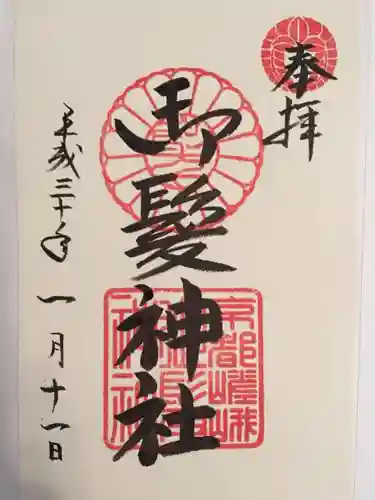 奉拝
御髪神社
京都嵯峨
平成三十年一月十一日